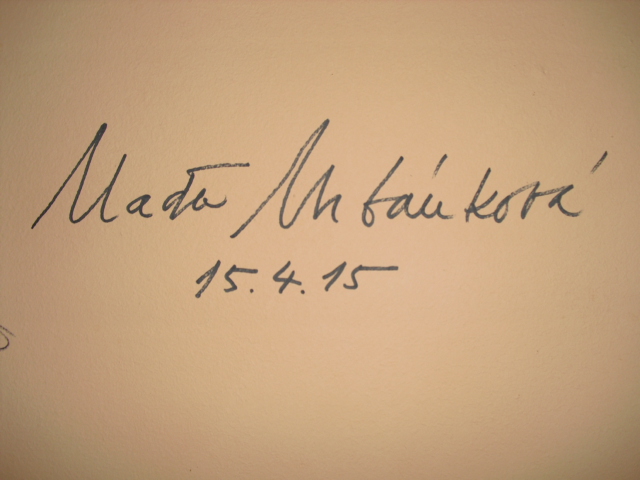 Naďa Urbánková
15.4.15